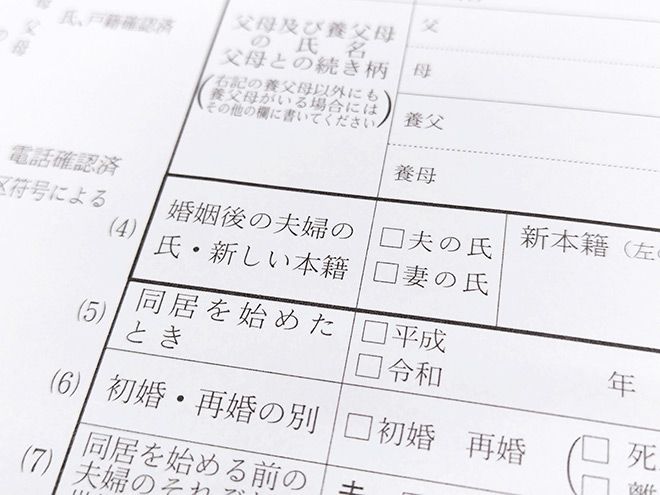 父母及び養父母
の氏名
父母との続き柄
(右記の養父母以外にも
養父母がいる場合には
その他の欄に書いてください)
父
母
養父
養母
氏、戸籍確認済
父
の 母
電話確認済
区符号による
(4)
婚姻後の夫婦の
氏・新しい本籍
□夫の氏
□妻の氏
新本籍(左の
(5)
同居を始めた
とき
□平成
□令和
年
(6)
初婚・再婚の別
□初婚 再婚
(□死
□離
(7)
同居を始める前の
夫婦のそれぞれ